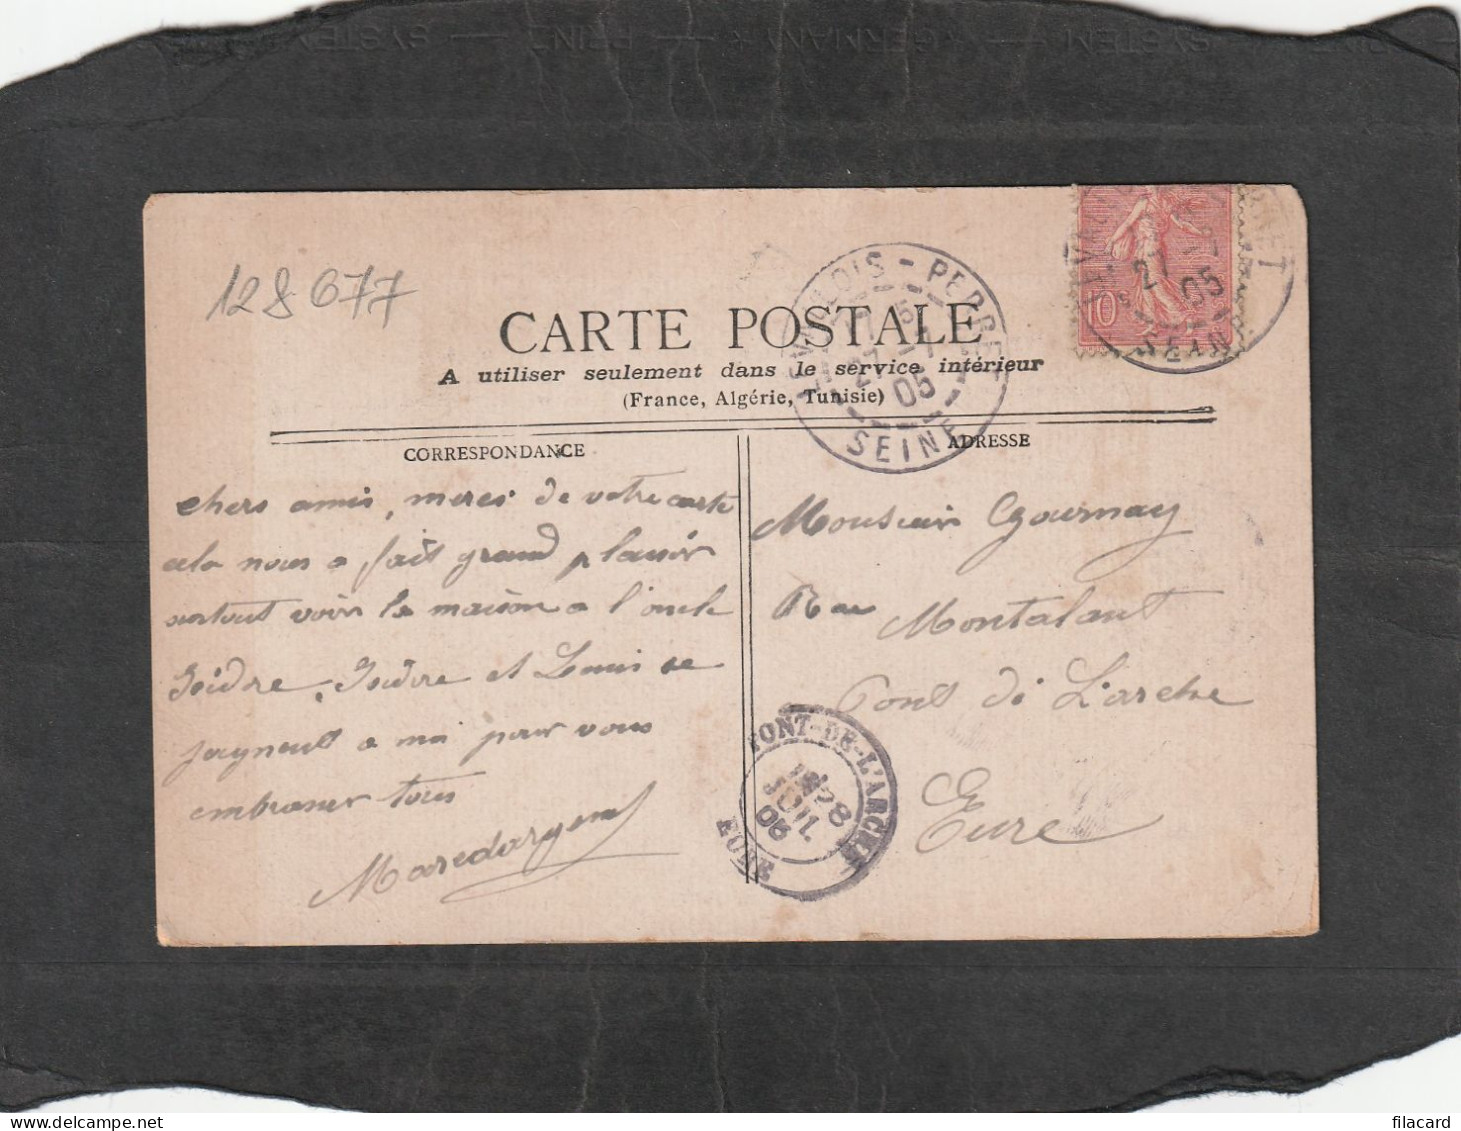 128677
CARTE POSTALE
A utiliser seulement dans le service intérieur
(France, Algérie, Tunisie)
LEVALLOIS - PERRET
27 - 7
05
SEINE
10
27
05
CORRESPONDANCE
ADRESSE
chers amis, merci de votre carte
cela nous a fait grand plaisir
surtout voir la maison a l'oncle
Isidre. Isidre et Louis se
joignent a moi pour vous
embrasser tous
Monsieur Gournay
Rue Montalant
Pont di L'arche
Eure
PONT-DE-L'ARCHE
28
JUIL.
05
EURE
filacard